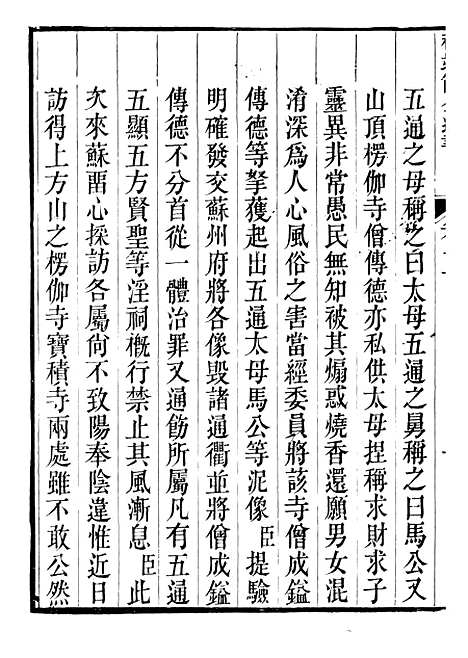 五通之母稱之曰太母五通之舅稱之曰馬公又
山頂楞伽寺僧傳德亦私供太母捏稱求財求子
靈異非常愚民無知被其煽惑燒香還願男女混
淆深爲人心風俗之害當經委員將該寺僧成鎰
傳德等拏獲起出五通太母馬公等泥像臣提驗
明確發交蘇州府將各像毀諸通衢並將僧成鎰
傳德不分首從一體治罪又通飭所屬凡有五通
五顯五方賢聖等淫祠槪行禁止其風漸息臣此
次來蘇畱心採訪各屬尙不致陽奉陰違惟近日
訪得上方山之楞伽寺寶積寺兩處雖不敢公然